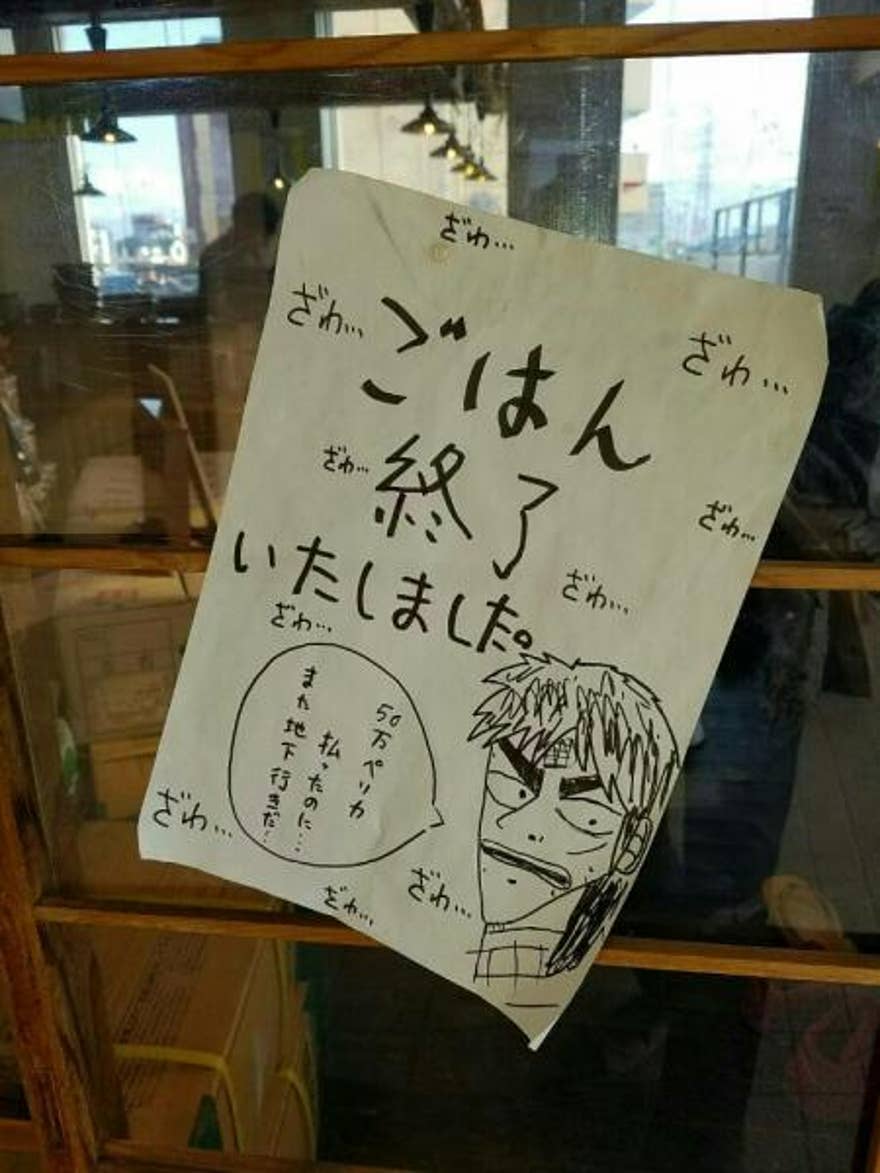 ざわ…
ざわ…
ざわ…
ごはん
ざわ…
終了
ざわ…
いたしました。
ざわ…
ざわ…
50万ペリカ
払ったのに…
また地下行きだ…
ざわ…
ざわ…
ざわ…